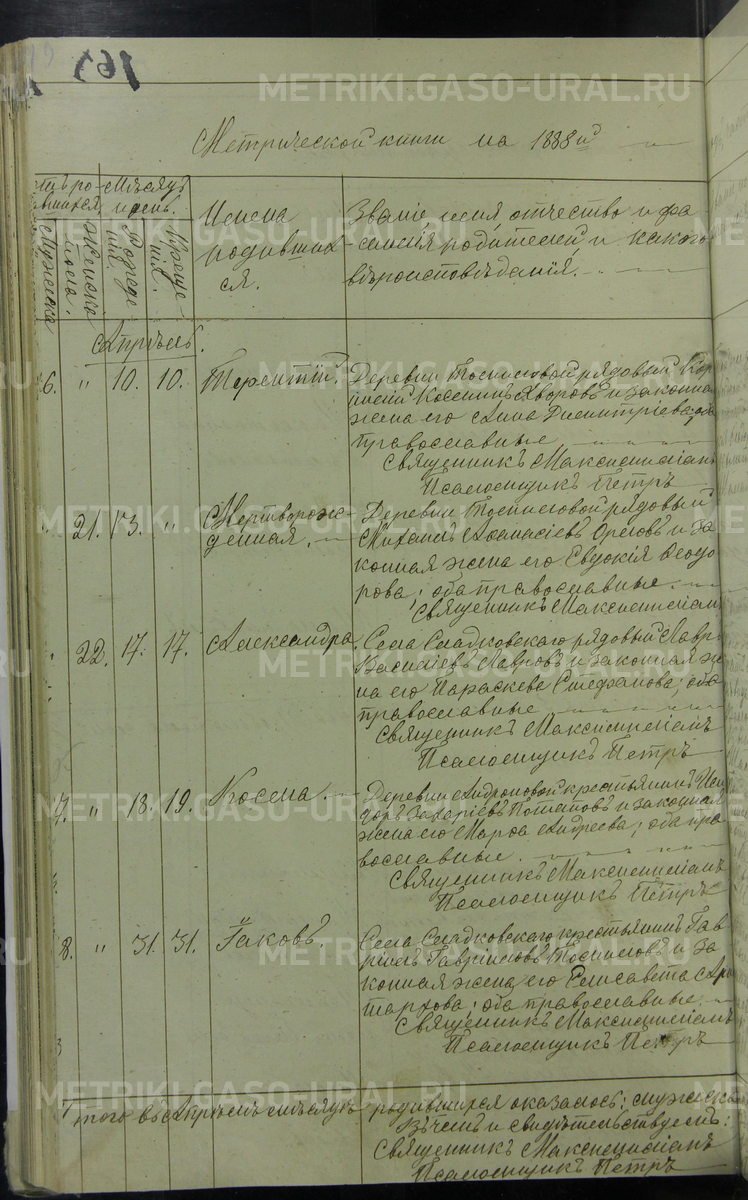 163
METRIKI.GASO-URAL.RU
Метрической книги на 1888й
Мѣсяцъ
и день.
Мужеска
Женска
пола.
Рожде-
нія.
Креще-
нія.
Имена
родивших-
ся.
Званіе, имя, отчество и фа-
-милія родителей и какого
вѣроисповѣданія.
Апрѣль.
6. " 10. 10. Терентій. Деревни рядовый
Косминъ Яворовъ и законна
жена его Анна Димитріева; оба
православные
Священникъ Максимиліанъ
Псаломщикъ Петръ
21. 13. " Мертворож- Деревни рядовый
денная. Михаилъ Аѳанасіевъ Орловъ и за
конная жена его Евдокія Ѳеодо
рова; оба православные.
Священникъ Максимиліан
22. 17. 17. Александра. Села Сладковскаго рядовый Лавр
Василіевъ Лавровъ и законная же
на его Параскева Стефанова; оба
православные
Священникъ Максимиліанъ
Псаломщикъ Петръ
7. " 18. 19. Косма. Деревни Андроновой крестьянинъ Иси
доръ Захаріевъ и законная
жена его Марѳа Андреева; оба пра
вославные.
Священникъ Максимиліанъ
Псаломщикъ Петръ
8. " 31. 31. Іаковъ. Села Сладковскаго крестьянинъ Гав
ріилъ Гавріиловъ и за
конная жена его Елисавета Ари
тархова; оба православные.
Священникъ Максимиліанъ
Псаломщикъ Петръ
того въ Апрѣлѣ мѣсяцѣ родившихся оказалось: мужска
В чемъ и свидѣтельствуемъ:
Священникъ Максимиліанъ
Псаломщикъ Петръ